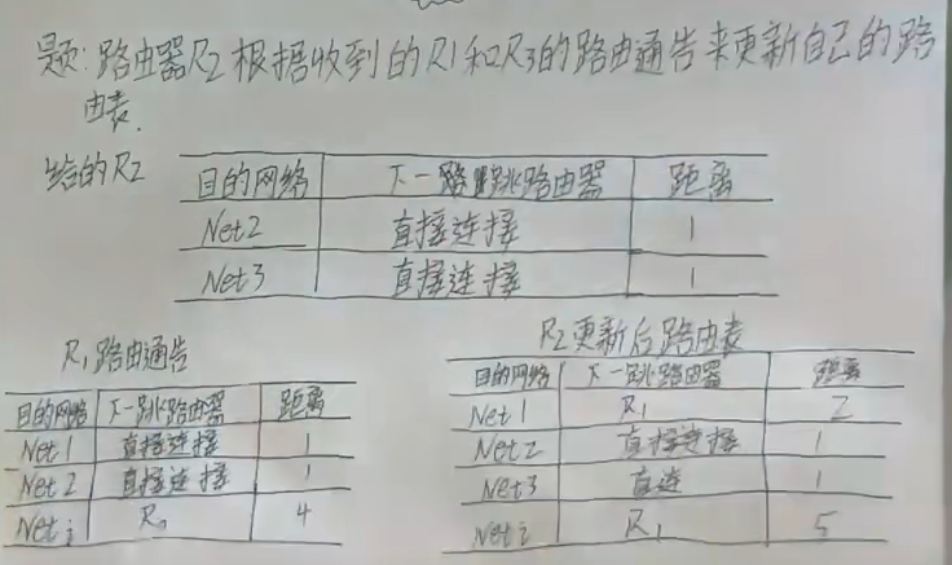 题:路由器R2根据收到的R1和R3的路由通告来更新自己的路
由表.
给的R2
目的网络 下一跳路由器 距离
Net2 直接连接 1
Net3 直接连接 1
R1路由通告
目的网络 下一跳路由器 距离
Net1 直接连接 1
Net2 直接连接 1
Neti Rn 4
R2更新后路由表
目的网络 下一跳路由器 距离
Net1 R1 2
Net2 直接连接 1
Net3 直连 1
Neti R1 5